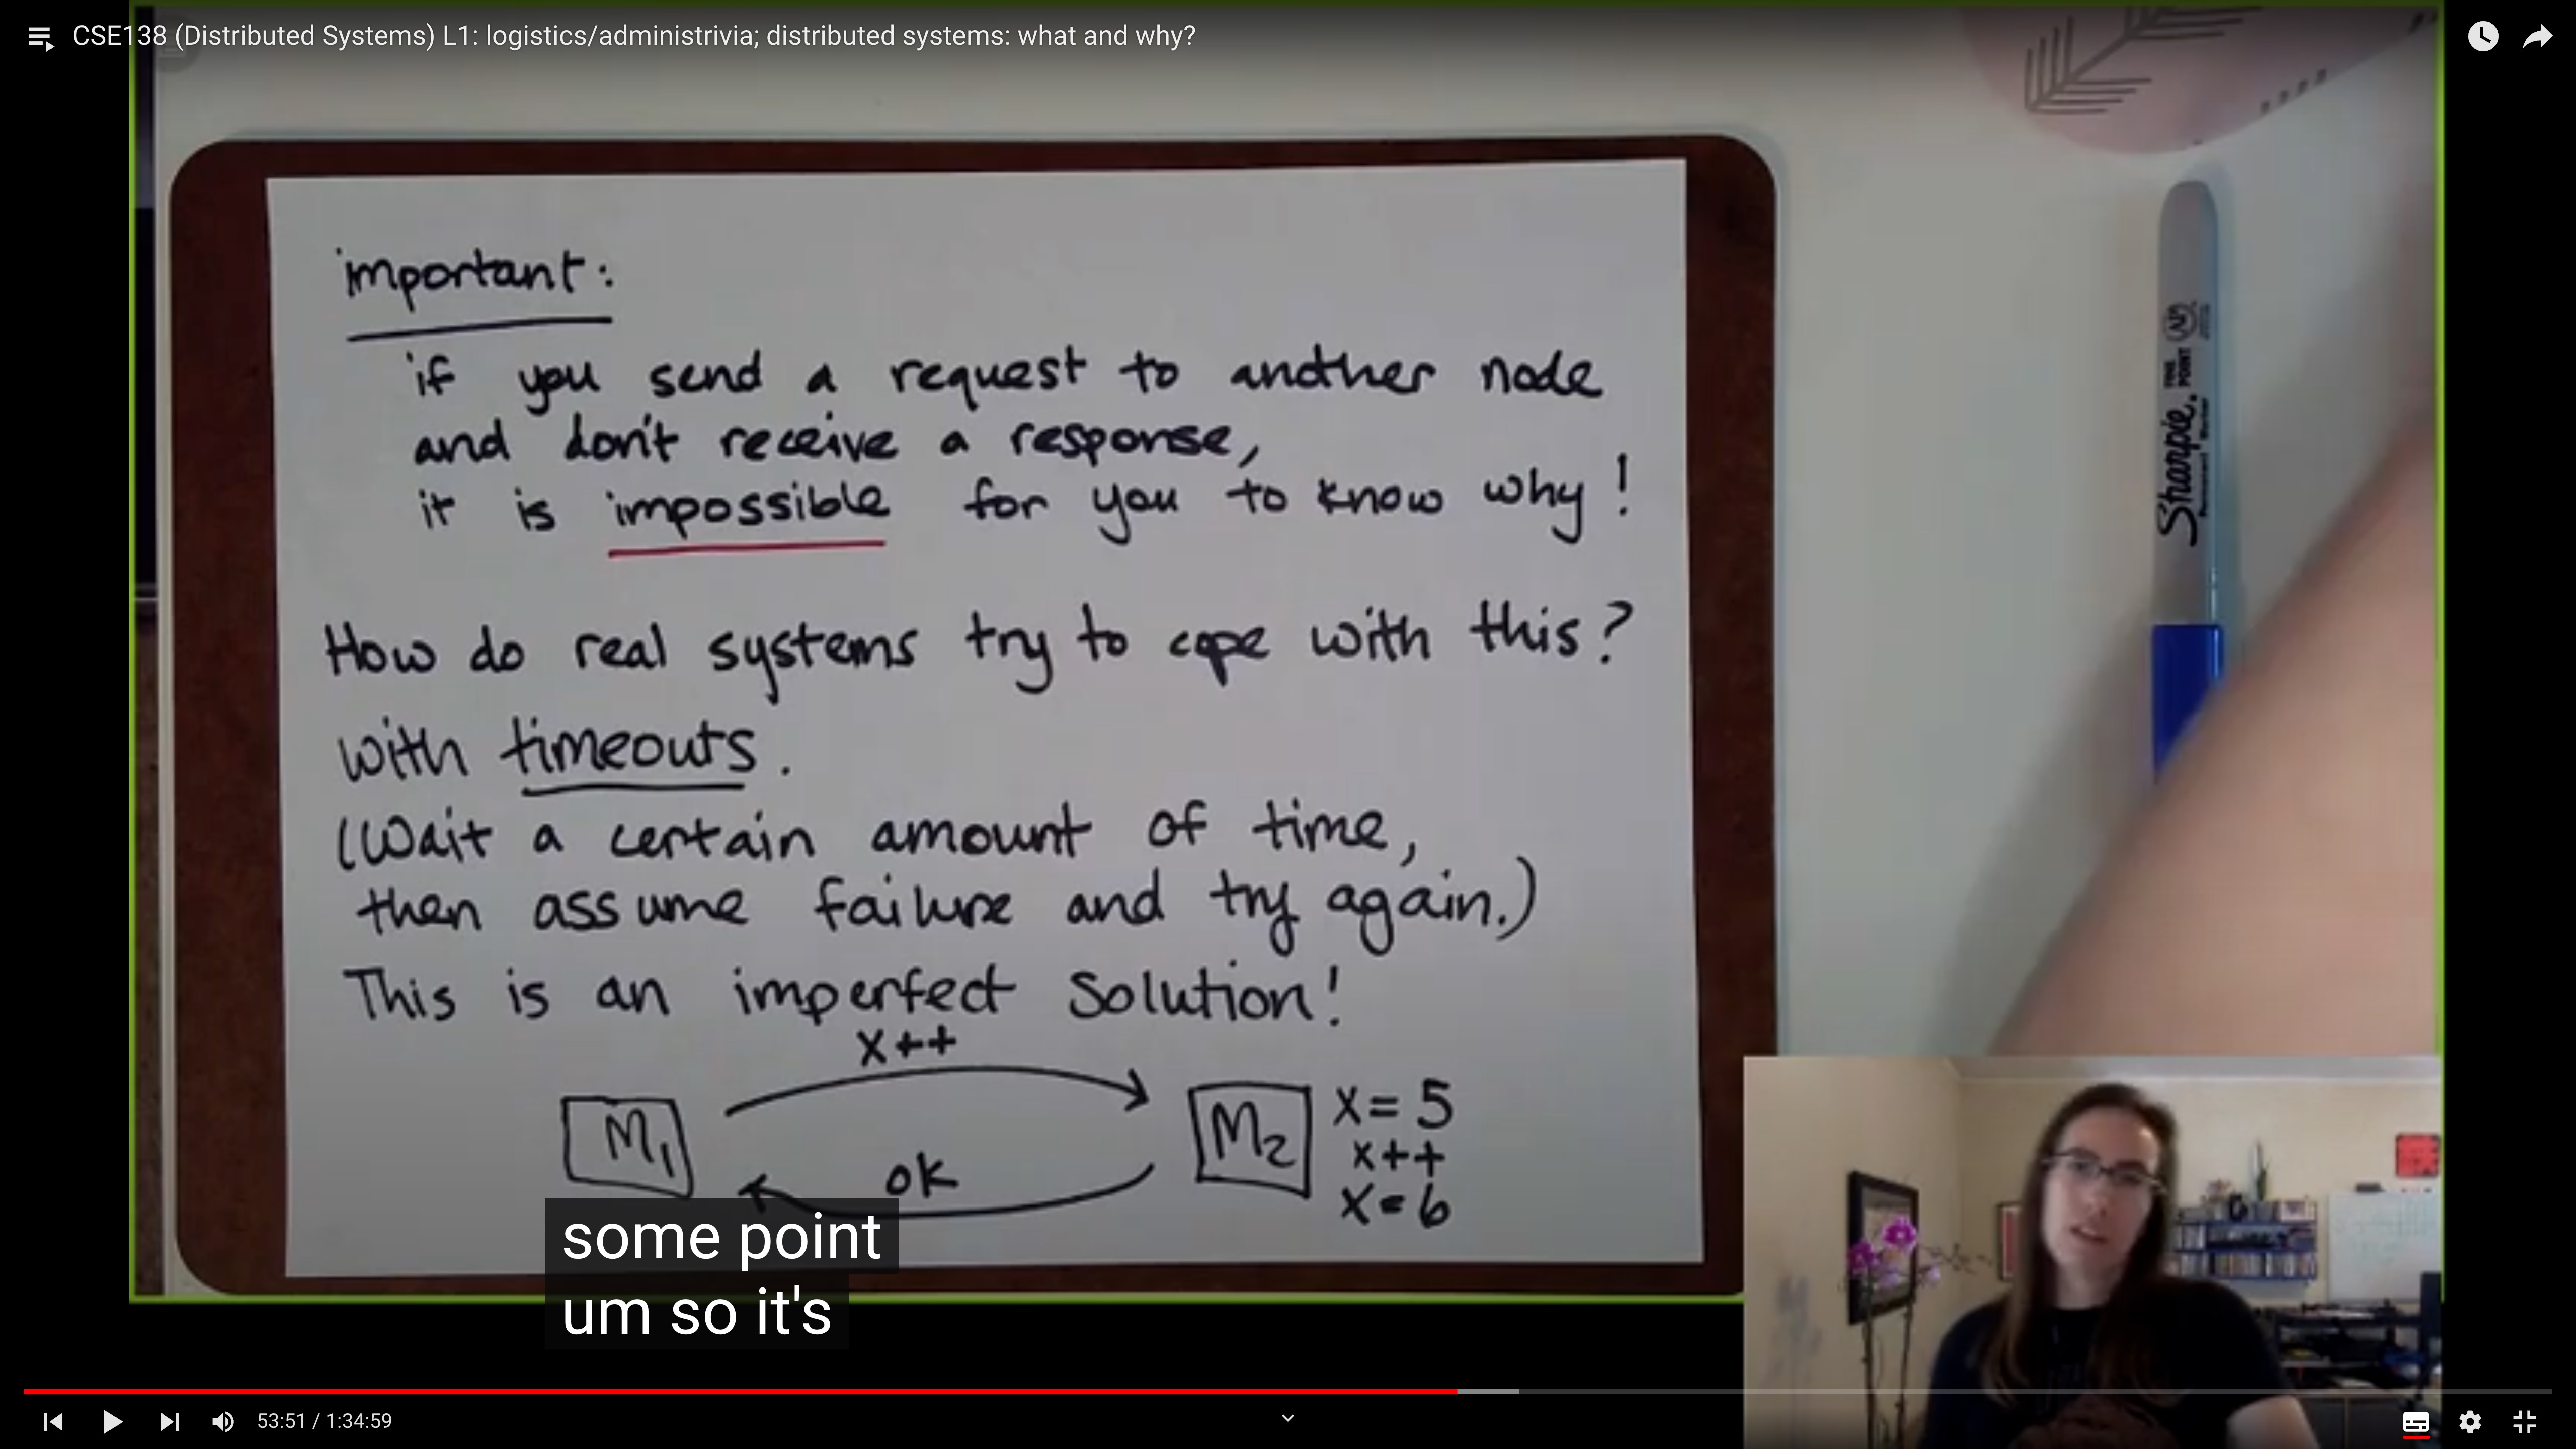 CSE138 (Distributed Systems) L1: logistics/administrivia; distributed systems: what and why?
important:
if you send a request to another node
and don't receive a response,
it is impossible for you to know why!
How do real systems try to cope with this?
with timeouts.
(Wait a certain amount of time,
then assume failure and try again.)
This is an imperfect solution!
x++
M1
M2
x=5
x++
x=6
ok
Sharpie.
FINE POINT
some point
um so it's
53:51 / 1:34:59